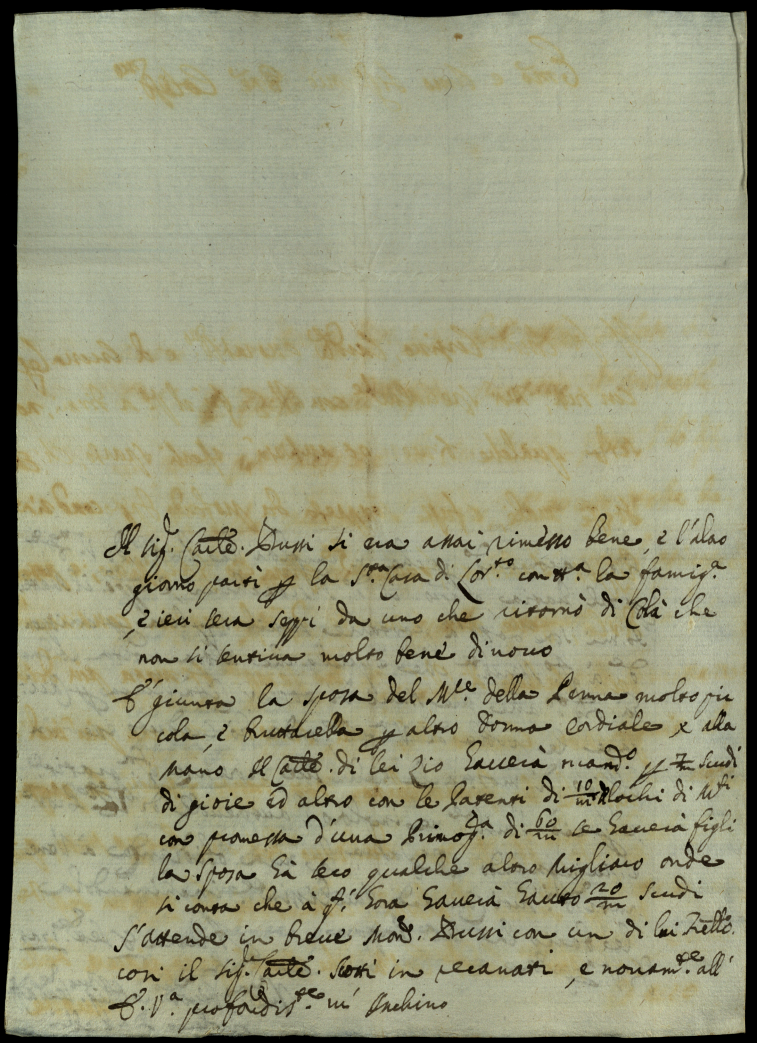 Il Sig.r Carle. Bussi si era assai rimesso bene, e l'altro
giorno partì per la S.ta Casa di Lor.to con tt.a la famig.a
, e ieri sera seppi da uno che ritornò di Colà che
non si sentiva molto bene di nuovo
E' giunta la sposa del M.se della Penna molto pic
cola, e bruttarella per altro donna cordiale, e alla
mano Il Carle. di lei Zio haverà mand.o per 7/m scudi
di gioie ed altro con le Patenti di 10/m lochi di M.ti
con promessa d'una Primog.ra di 60/m se haverà figli
la sposa hà seco qualche altro Migliaro onde
si conta che à q.st' hora haverà hauto 20/m Scudi
S'attende in breve Mons.r Bussi con un di lui Fratello.
così il Sig.r Carle. Scotti in recanati, e novam.te all'
E. V.a profondis.te m' Inchino